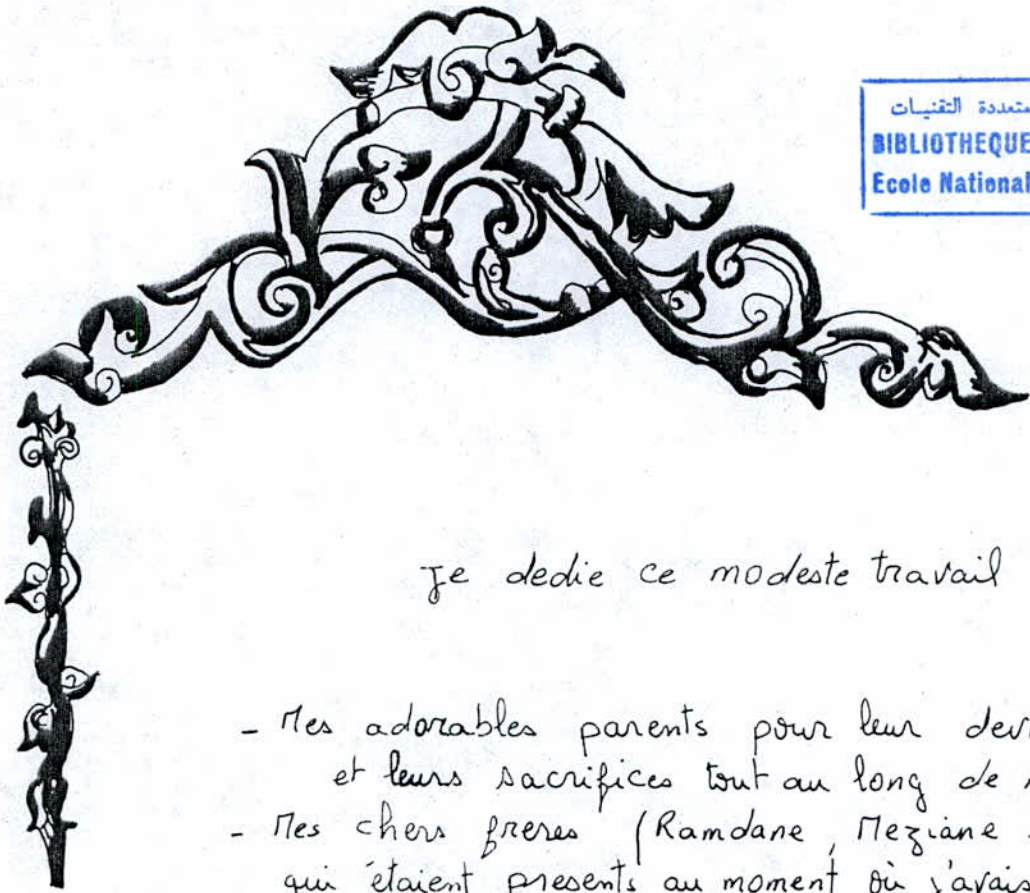 متعددة التقنيات
BIBLIOTHEQUE
Ecole National
Je dedie ce modeste travail
- Mes adorables parents pour leur
et leurs sacrifices tout au long de
- Mes chers freres (Ramdane, Meziane
qui étaient presents au moment où j'avais